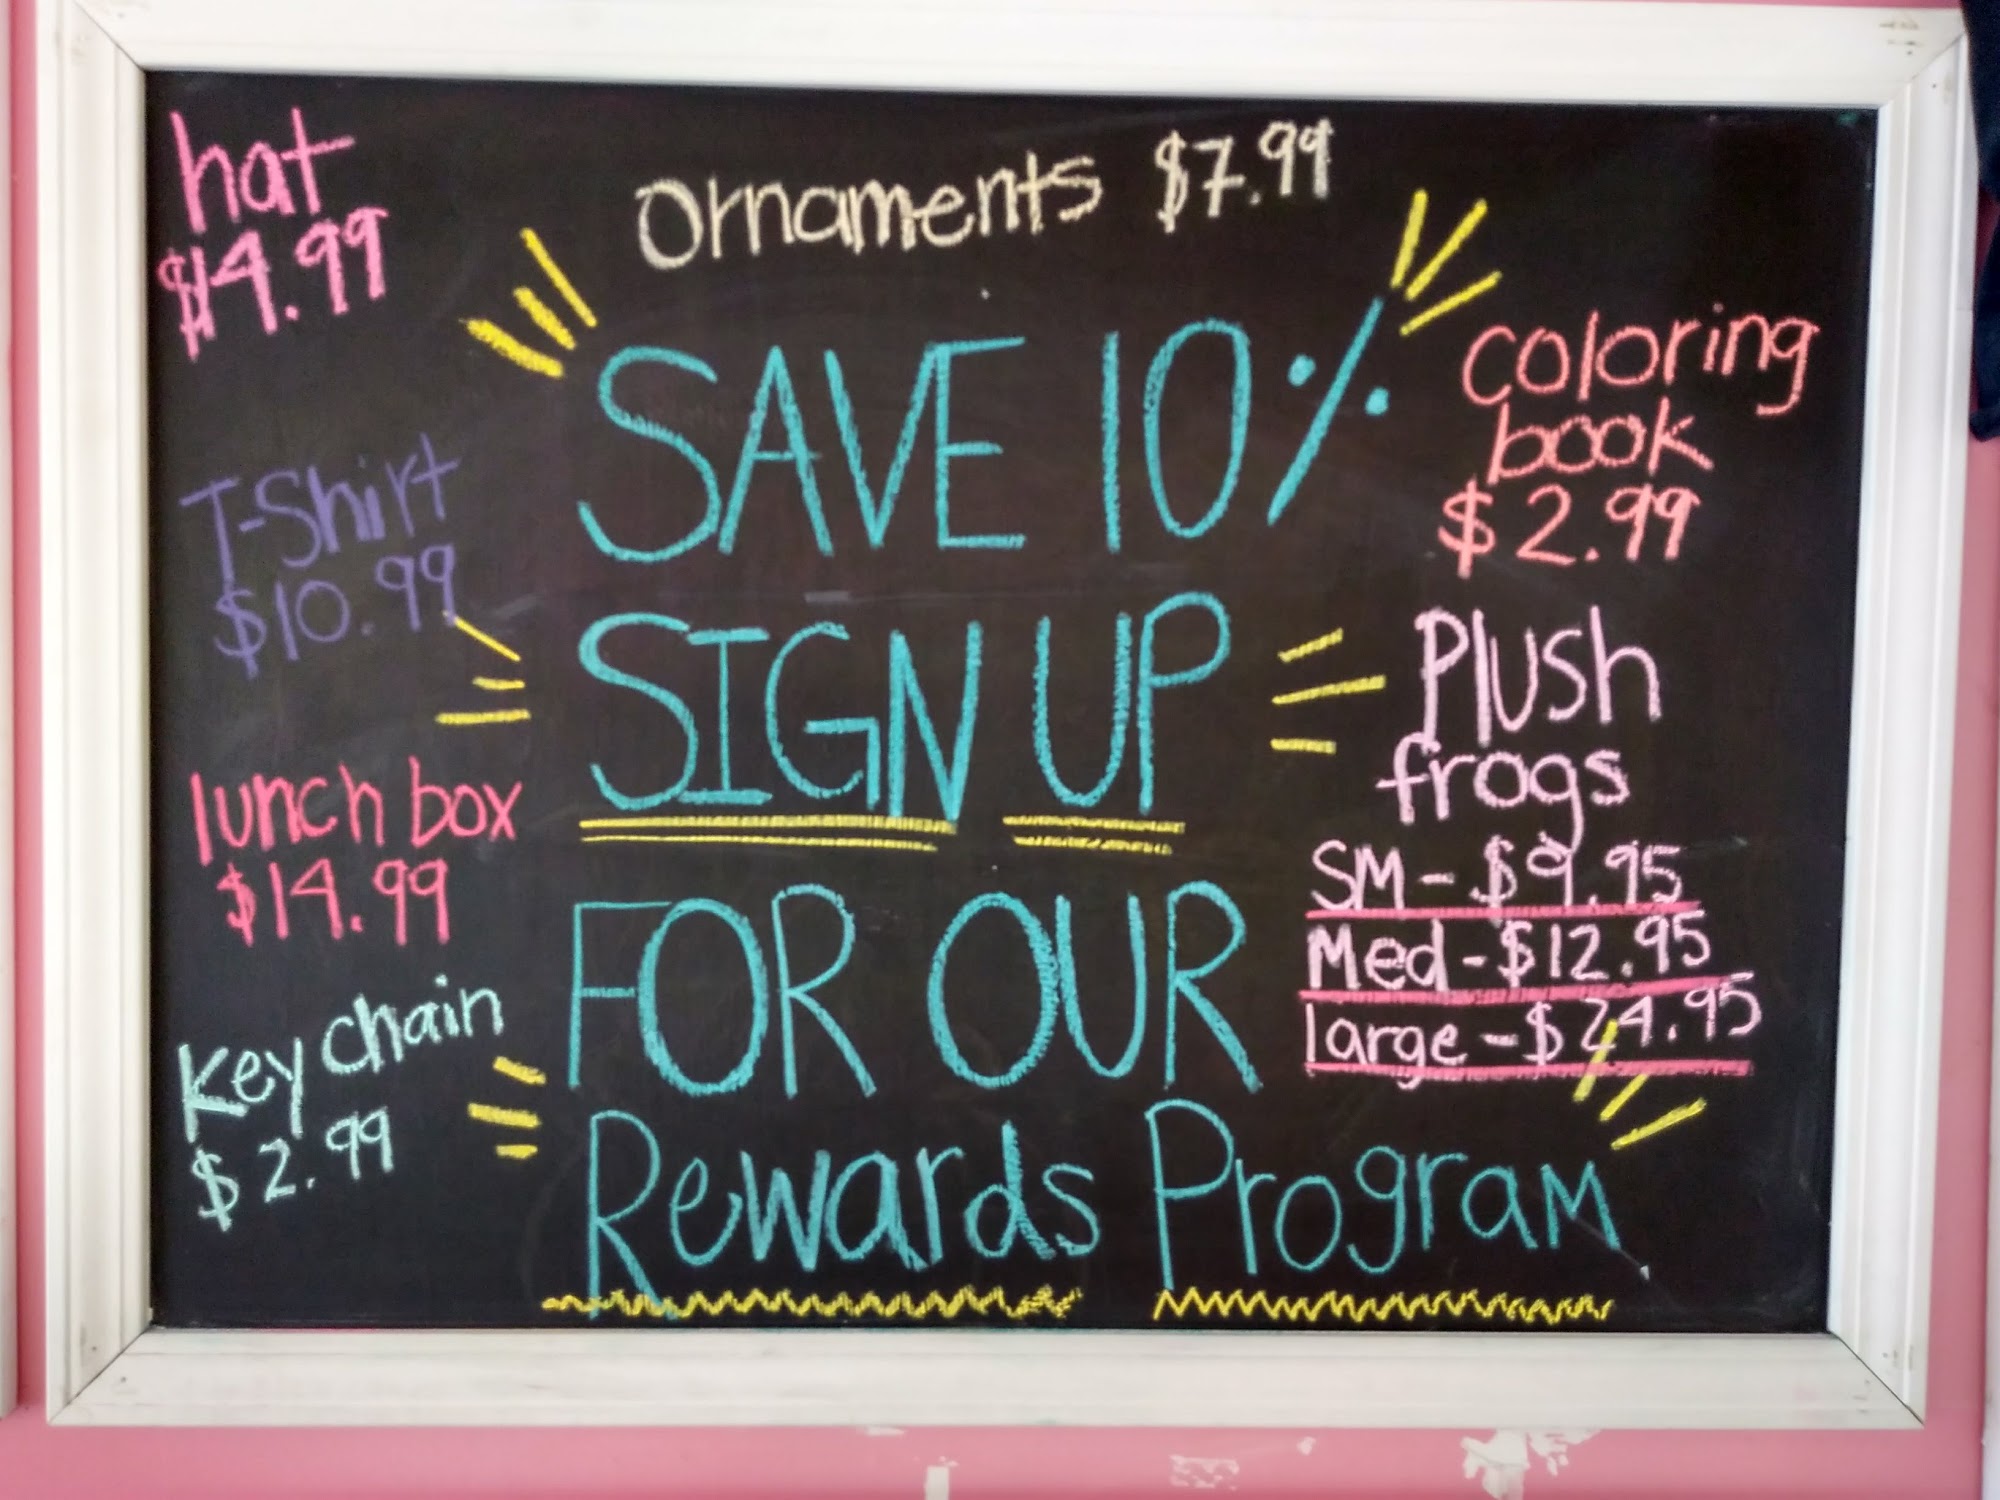 hat
$14.99
T-Shirt
$10.99
lunch box
$14.99
Key chain
$2.99
Ornaments $7.99
SAVE 10%
SIGN UP
FOR OUR
Rewards Program
Coloring
book
$2.99
Plush
frogs
SM-$9.95
Med-$12.95
large-$24.95